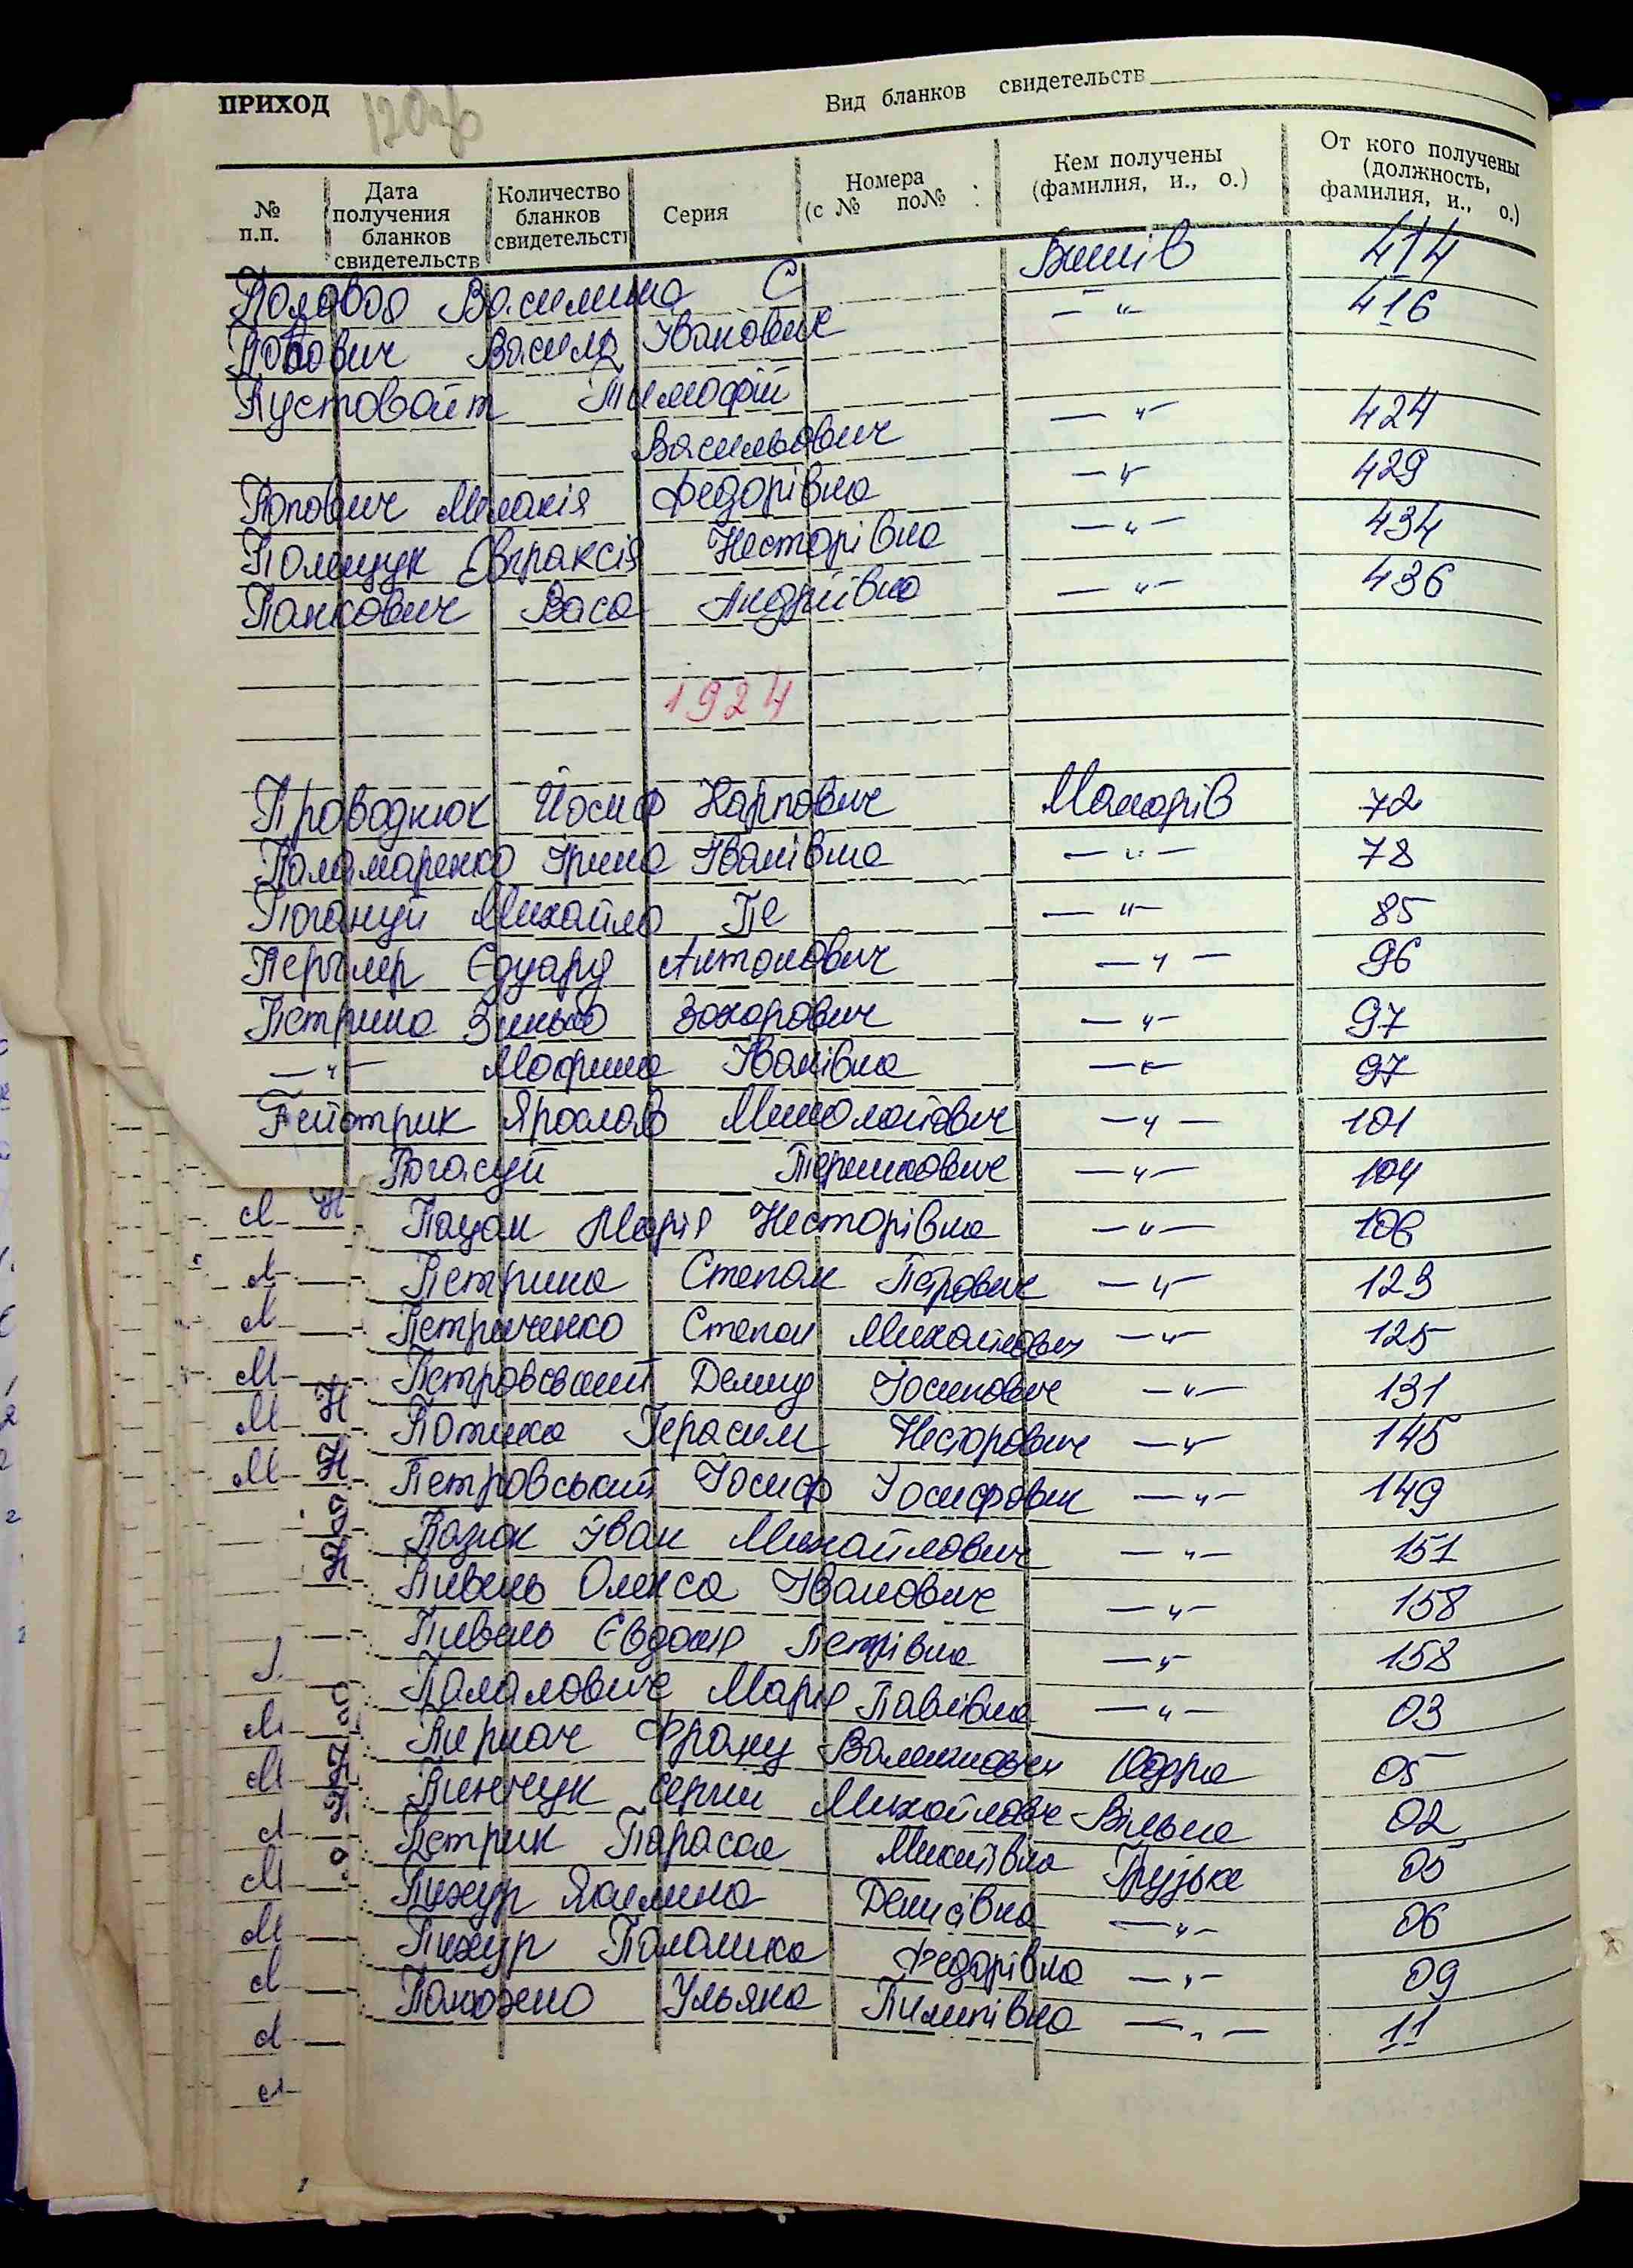 ПРИХОД
Вид бланков свидетельств
№ п.п.
Дата получения бланков свидетельств
Количество бланков свидетельств
Серия
Номера (с № по№
Кем получены (фамилия, и., о.)
От кого получены (должность, фамилия, и., о.)
Полової Василина С 414
Попович Василь Іванович — " 416
Пустовойт Тимофій
Васильович — " — 424
Попович Меланія Федорівна — " 429
Полещук Євпраксія Несторівна — " — 434
Панкович Васа Андріївна — " — 436
1924
Проводнюк Йосиф Карпович Макарів 72
Паламаренко Ірина Іванівна — " — 78
Погануй Михайло Пе — " — 85
Перглер Едуард Антонович — " — 96
Петрина Зинько Захарович — " — 97
— " — Мофина Іванівна — " — 97
Пейотрик Ярослав Миколайович — " — 101
Погасуй Терешкович — " — 104
Пацан Марія Несторівна — " — 106
Петрина Степан Петрович — " — 123
Петриченко Степан Михайлович — " — 125
Петровський Демид Йосипович — " — 131
Потика Герасим Несторович — " — 145
Петровський Йосиф Йосифович — " — 149
Пазюк Іван Михайлович — " — 151
Пивень Олекса Іванович — " — 158
Пивень Євдокія Петрівна — " — 158
Паламович Марія Павлівна — " — 03
Пирнач Франц 05
Пинчук Сергій Михайлович Вільне 02
Петрик Параска Микитівна Грузьке 05
Пихур Якилина Денисівна — " — 06
Пихур Палашка Федорівна — " — 09
Панюжено Ульяна Пилипівна — " — 11